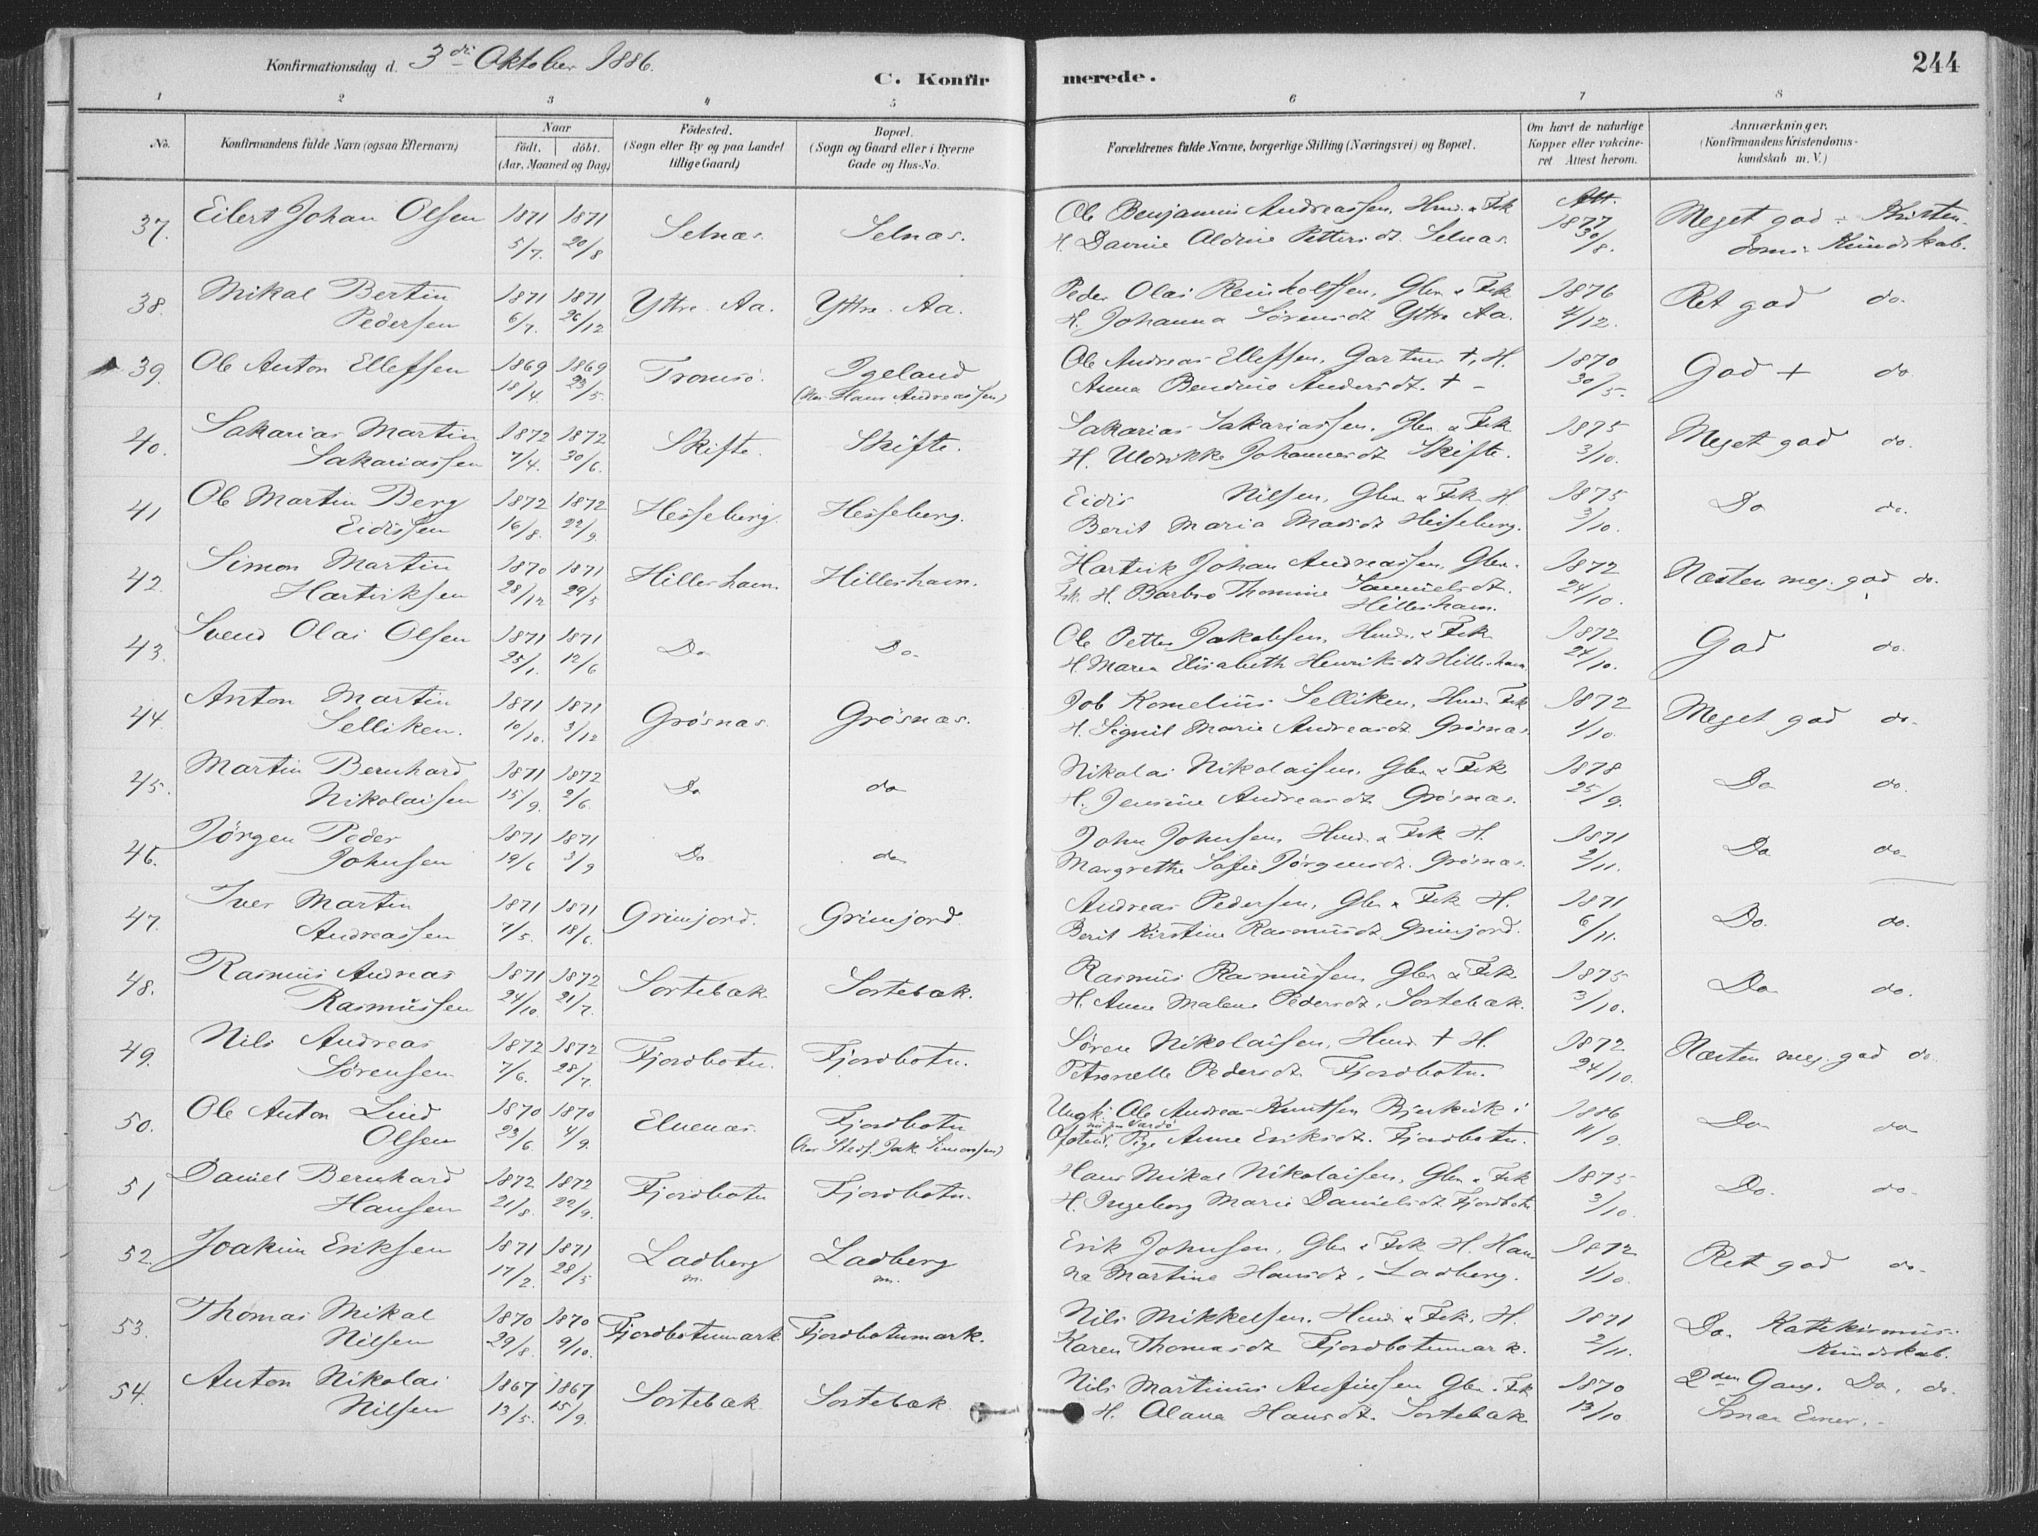 Konfirmationsdag d. 3die Oktober 1886.
C. Konfirmerede.
244
1 2 3 4 5 6 7 8
No.
Konfirmandens fulde Navn (ogsaa Efternavn)
Naar
födt. döbt.
(Aar, Maaned og Dag)
Födested.
(Sogn eller By og paa Landet
tillige Gaard)
Bopæl.
(Sogn og Gaard eller i Byerne
Gade og Hus-No.
Forældrenes fulde Navne, borgerlige Stilling (Næringsvei) og Bopæl.
Om havt de naturlige
Kopper eller vakcine-
ret Attest herom.
Anmærkninger.
(Konfirmandens Kristendoms-
kundskab m. V.)
37. Eilert Johan Olsen 1871 5/7. 1871 20/8 Selnæs. Selnæs. Ole Benjamin Andreassen, Hmd. & Fsk
H. Davine Aldrine Pettersdt. Selnæs. Att. 1877 30/8. Meget god Kristen-
doms Kundskab.
38. Mikal Bertin
Pedersen 1871 6/7. 1871 26/12 Yttre Aa. Yttre Aa. Peder Olai Reinholtsen, Gbr. & Fsk
H. Johanna Sørensdt Yttre Aa. 1876 4/12. Ret god do.
39. Ole Anton Ellefsen 1869 18/4. 1869 23/5. Tromsö. Igeland
(hos Hans Andreassen) Ole Andreas Ellefsen, Gartner +, H.
Anna Bendine Andersdt. + - 1870 30/5. God + do
40. Sakarias Martin
Sakariassen 1872 7/4. 1872 30/6. Skifte. Skifte. Sakarias Sakariassen, Gbr. & Fsk
H. Uldrikke Johannesdt Skifte. 1875 3/10. Meget god do.
41 Ole Martin Berg
Eidissen 1872 16/8. 1872 22/9. Hesseberg. Hesseberg. Eidis Nilsen, Gbr. & Fsk H
Berit Maria Madsdt Hesseberg. 1875 3/10. Do do.
42. Simon Martin
Hartviksen 1870 28/12 1871 29/5 Hillershavn. Hillershavn. Hartvik Johan Andreassen, Gbr.
Fsk. H. Barbro Thomine Samuelsdt.
Hillershavn. 1872 24/10. Næsten meg. god do.
43. Svend Olai Olsen 1871 25/1. 1871 12/6 Do Do. Ole Petter Jakobsen, Hmd. & Fsk
H. Maren Elisabeth Henriksdt Hillershavn 1872 24/10. God do.
44. Anton Martin
Selliken. 1871 10/10. 1871 3/12 Grösnæs. Grösnæs. Job Kornelius Selliken, Hmd. Fsk
H. Signil Marie Andreasdt. Grösnæs 1872 1/10. Meget god do.
45. Martin Bernhard
Nikolaisen 1871 15/9. 1872 2/6. Do do Nikolai Nikolaisen, Gbr. & Fsk
H. Jensine Andreasdt Grösnæs. 1878 25/9. Do do.
46. Jörgen Peder
Johnsen 1871 19/6 1871 3/9 Do do John Johnsen, Hmd. & Fsk H.
Margrethe Sofie Jörgensdt. Grösnæs. 1871 2/11. Do do
47. Iver Martin
Andreassen 1871 7/5. 1871 18/6. Grimjord. Grimjord. Andreas Pedersen, Gbr. & Fsk H.
Berit Kirstine Rasmusdt Grimjord. 1871 6/11. Do. do.
48. Rasmus Andreas
Rasmussen 1871 24/10. 1872 21/7. Sortebæk Sortebæk. Rasmus Rasmussen Gbr & Fsk
H. Anne Malene Pedersdt, Sortebæk. 1875 3/10. Do do.
49. Nils Andreas
Sörensen 1872 7/6. 1872 28/7. Fjordbotn. Fjordbotn. Sören Nikolaisen, Hmd. + H.
Petronelle Pedersdt Fjordbotn. 1872 24/10. Næsten meg. god do.
50. Ole Anton Lind
Olsen 1870 23/6. 1870 4/9. Elvenæs. Fjordbotn
(hos Stedf. Jak. Simonsen) Ungk. Ole Andreas Knutsen Bjerkvik i
Ofoten, Pige Anne Eriksdt. Fjordbotn. 1886 11/9. Do do
51 Daniel Bernhard
Hansen 1872 21/8. 1872 22/9. Fjordbotn Fjordbotn. Hans Mikal Nikolaisen, Gbr. & Fsk
H. Ingeborg Marie Danielsdt Fjordbotn 1875 3/10. Do. do.
52. Joakim Eriksen 1871 17/2. 1871 28/5 Ladberg
m. Ladberg
m. Erik Johnsen, Gbr & Fsk H. Han-
na Martine Hansdt, Ladberg. 1872 1/10. Ret god do.
53. Thomas Mikal
Nilsen 1870 29/8. 1870 9/10. Fjordbotnmark Fjordbotnmark. Nils Mikkelsen, Hmd. & Fsk. H.
Karen Thomasdt Fjordbotnmark. 1871 2/11. Do. Katekismus-
Kundskab.
54. Anton Nikolai
Nilsen 1867 13/5. 1867 15/9. Sortebæk Sortebæk Nils Martinus Anfinsen Gbr. & Fsk
H. Olava Hansdt. Sortebæk 1870 13/10. 2den Gang. Do. do.
Smaa Evner.